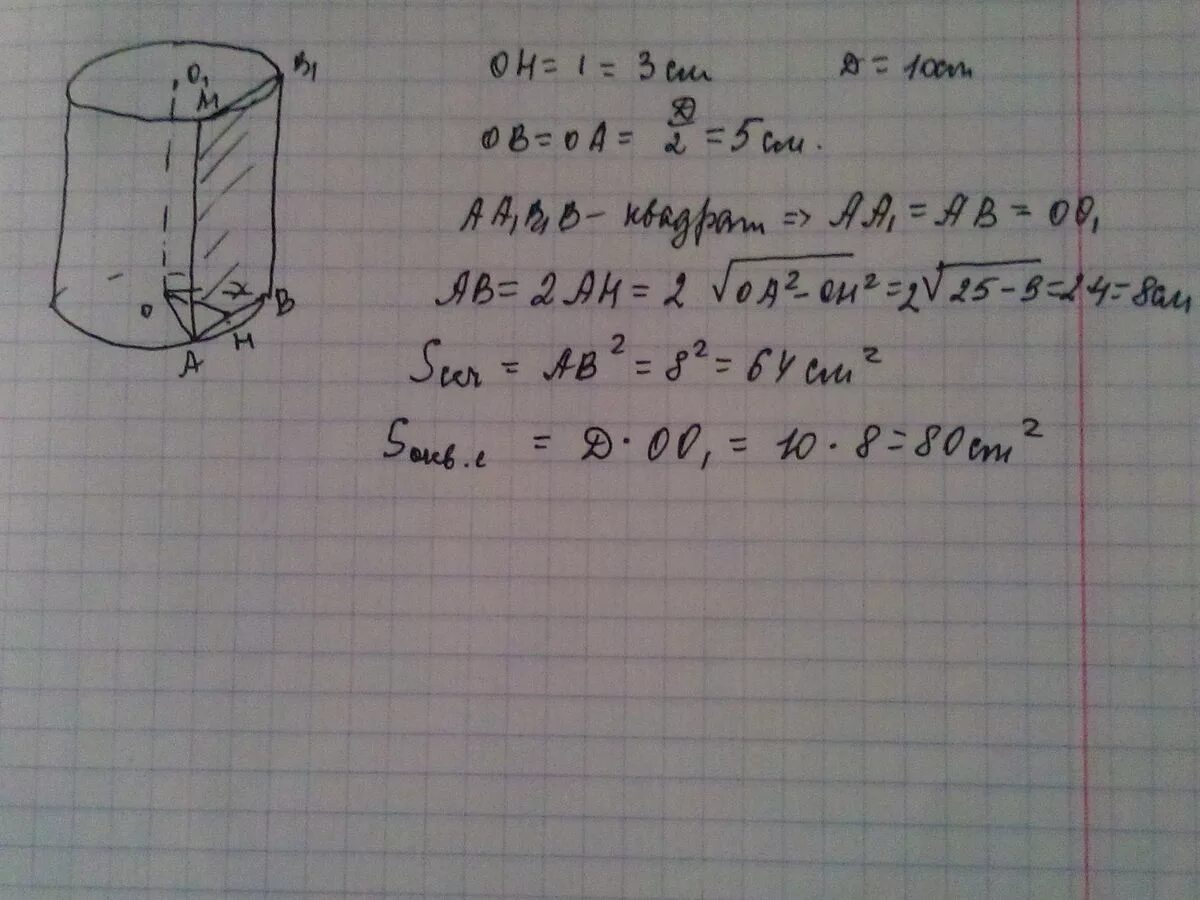 O₁ M B₁
O A H B x
OH = 1 = 3 см Д = 10 см
OB = OA = Д/2 = 5 см.
AA₁B₁B – квадрат => AA₁ = AB = OO₁
AB = 2AH = 2 √OA² – OH² = 2√25 – 9 = 2 4 = 8 см
Sсеч = AB² = 8² = 64 см²
S = Д · OO₁ = 10 · 8 = 80 см²